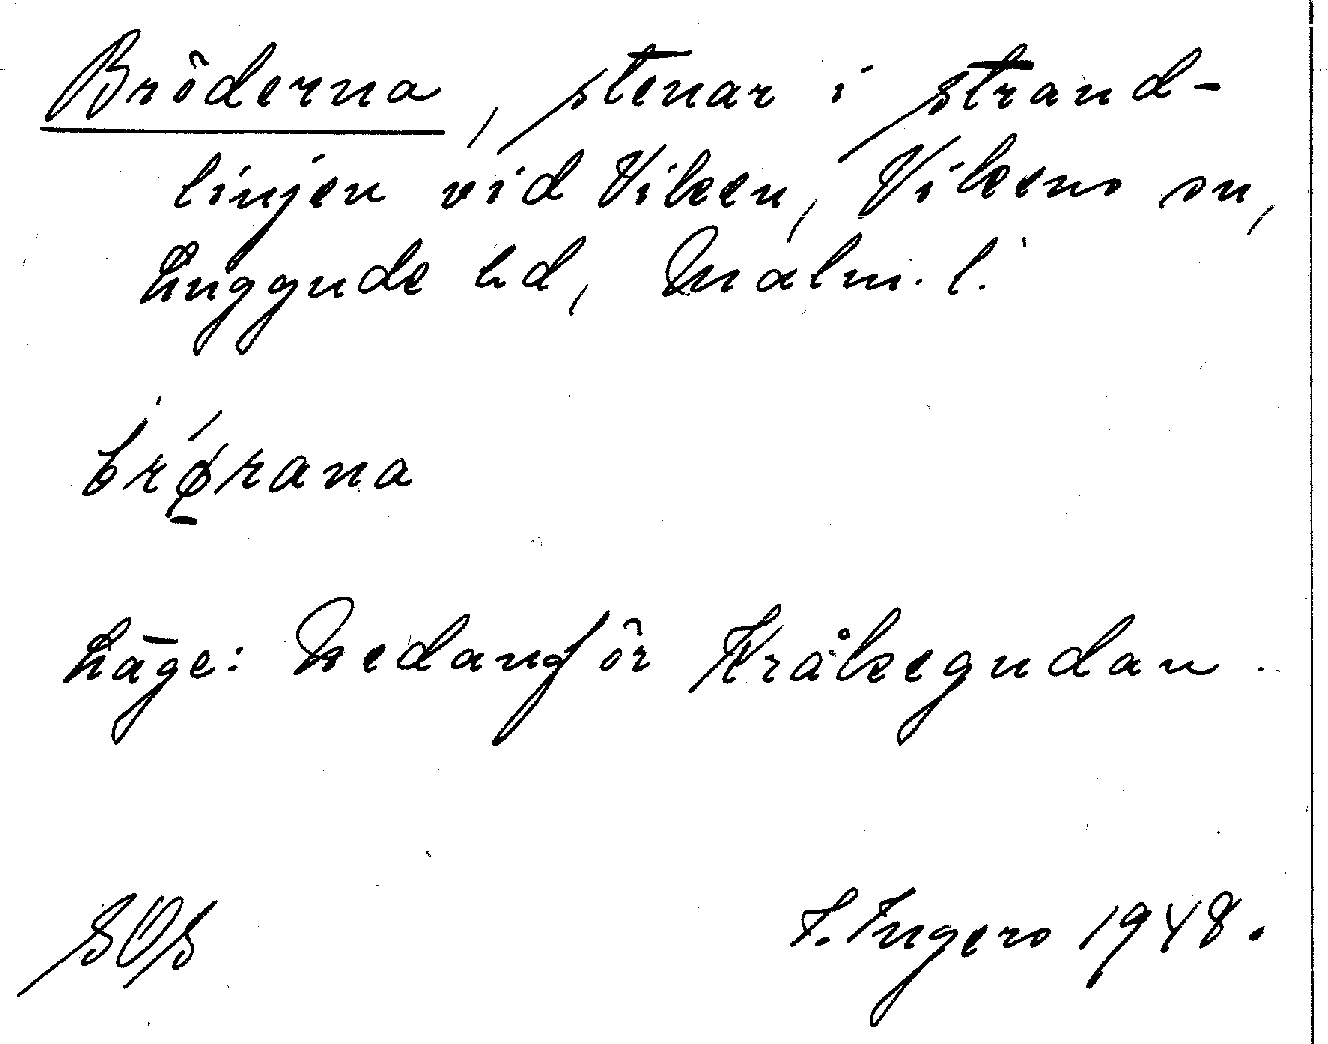 Bröderna, stenar i strand-
linjen vid Viken, Vikens sn,
Luggude hd, Malm. l.
brǿ̨rana
Läge: Nedanför Kråkegudan.
SOS
I. Ingers 1948.